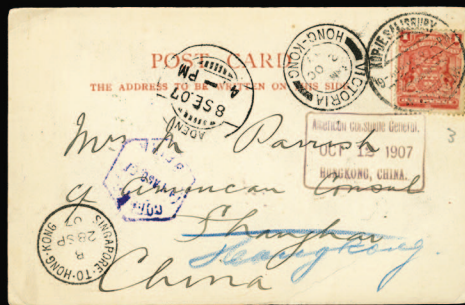 POST CARD
THE ADDRESS TO BE WRITTEN ON THIS SIDE
VICTORIA
HONG-KONG
OC
SALISBURY
ADEN
8 SE.07
A-PM
American Consulate General,
OCT 12 1907
HONGKONG, CHINA.
3
Mrs M Parrish
c/o American Consul
Shanghai
Hongkong.
China
SINGAPORE-TO-HONG-KONG
B
28 SP
07